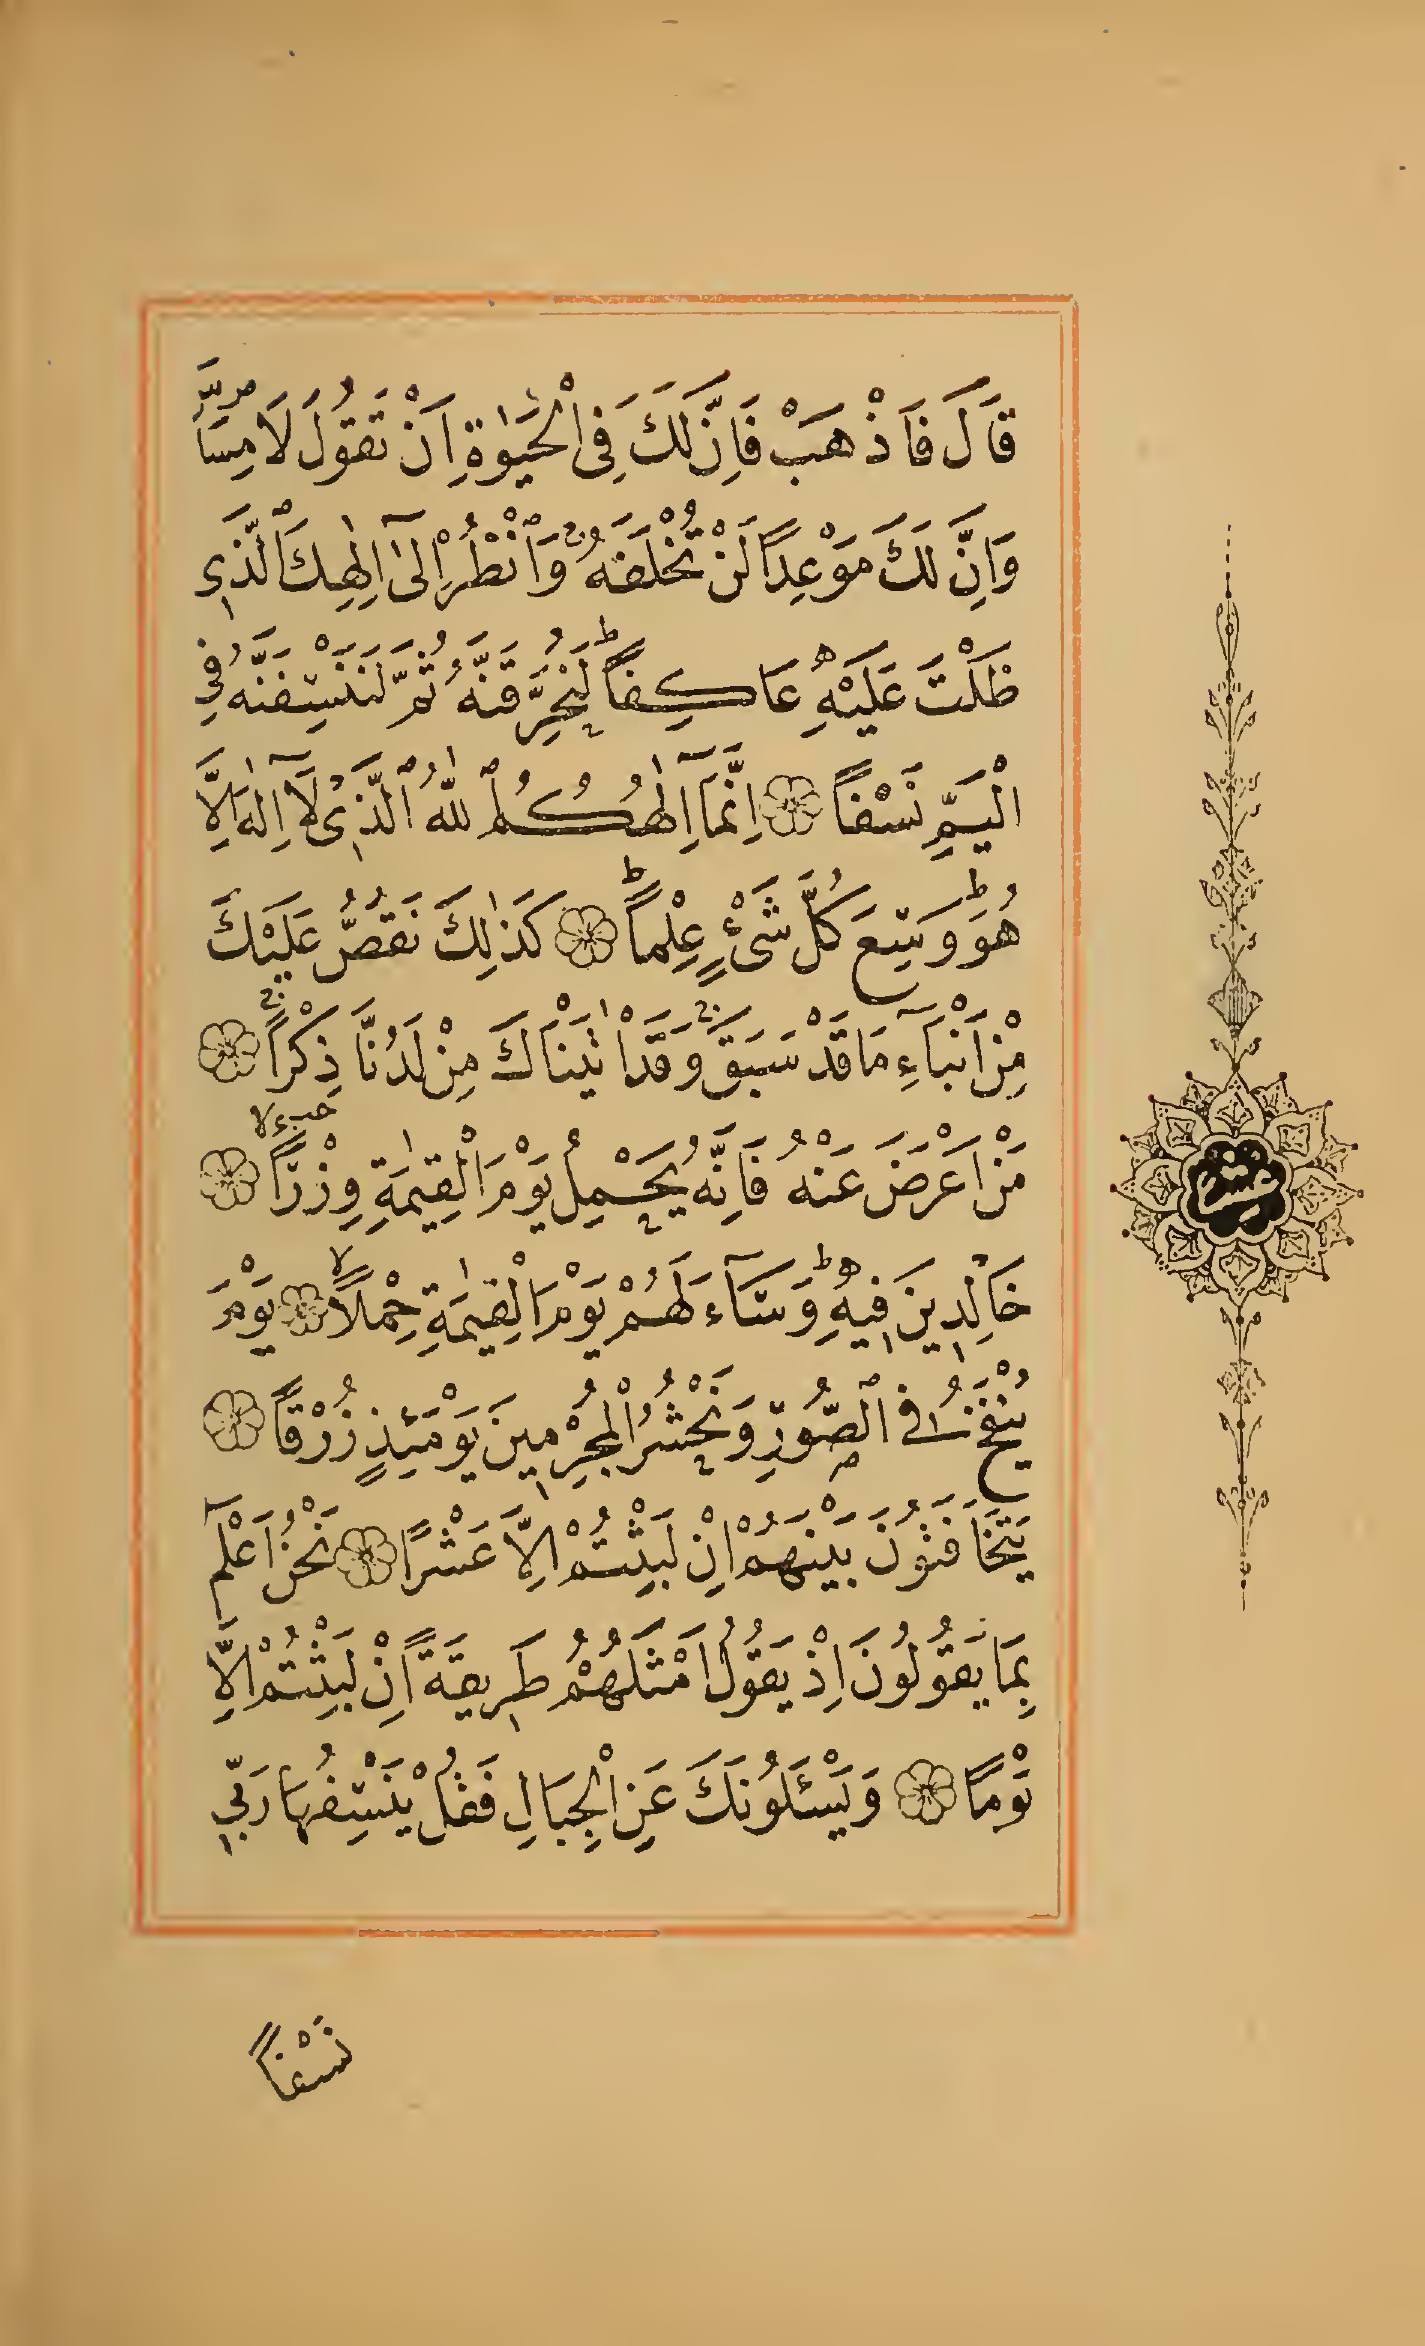 قَالَ فَاذْهَبْ فَاِنَّ لَكَ فِى الْحَيٰوةِ اَنْ تَقُولَ لَا مِسَاسَ
وَاِنَّ لَكَ مَوْعِدًا لَنْ تُخْلَفَهُ وَانْظُرْ اِلٰٓى اِلٰهِكَ الَّذِى
ظَلْتَ عَلَيْهِ عَاكِفًا لَنُحَرِّقَنَّهُ ثُمَّ لَنَنْسِفَنَّهُ فِى
الْيَمِّ نَسْفًا اِنَّمَآ اِلٰهُكُمُ اللّٰهُ الَّذِى لَآ اِلٰهَ اِلَّا
هُوَ وَسِعَ كُلَّ شَىْءٍ عِلْمًا كَذٰلِكَ نَقُصُّ عَلَيْكَ
مِنْ اَنْبَآءِ مَا قَدْ سَبَقَ وَقَدْ اٰتَيْنَاكَ مِنْ لَدُنَّا ذِكْرًا
مَنْ اَعْرَضَ عَنْهُ فَاِنَّهُ يَحْمِلُ يَوْمَ الْقِيٰمَةِ وِزْرًا
خَالِدِينَ فِيهِ وَسَآءَ لَهُمْ يَوْمَ الْقِيٰمَةِ حِمْلًا يَوْمَ
يُنْفَخُ فِى الصُّورِ وَنَحْشُرُ الْمُجْرِمِينَ يَوْمَئِذٍ زُرْقًا
يَتَخَافَتُونَ بَيْنَهُمْ اِنْ لَبِثْتُمْ اِلَّا عَشْرًا نَحْنُ اَعْلَمُ
بِمَا يَقُولُونَ اِذْ يَقُولُ اَمْثَلُهُمْ طَرِيقَةً اِنْ لَبِثْتُمْ اِلَّا
يَوْمًا وَيَسْئَلُونَكَ عَنِ الْجِبَالِ فَقُلْ يَنْسِفُهَا رَبِّى
نَسْفًا